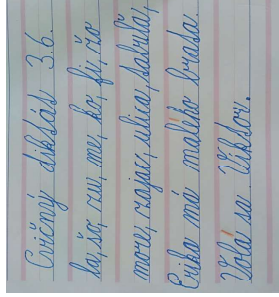 Cvičný diktát 3.6.
la, ša, zu, me, ko, fi, žo
more, zajac, ulica, sobota,
Erika má malého brata.
Volá sa Viktor.